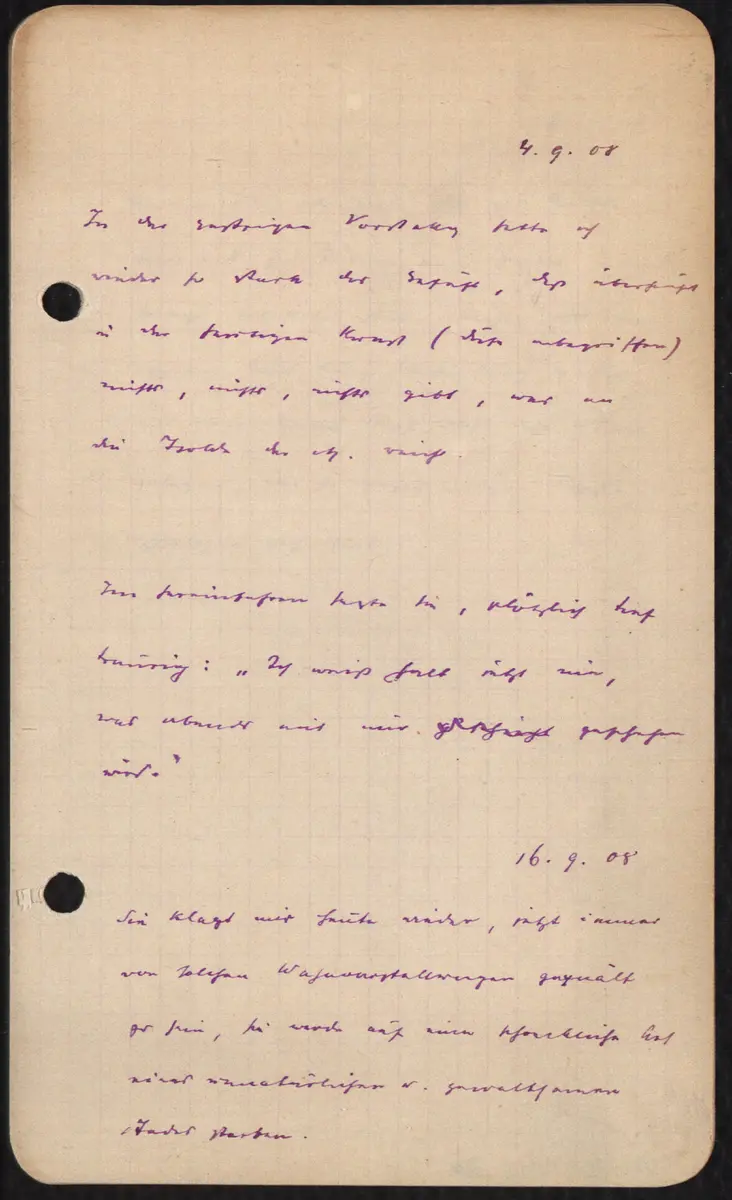 4. 9. 08
In der gestrigen Vorstellung hatte ich
wieder so stark das Gefühl, daß überhaupt
in der heutigen Kunst (Duse inbegriffen)
nichts, nichts, nichts gibt, was an
die Isolde der M. reicht.
Im Hereinfahren sagte sie, plötzlich tief
traurig: „Ich weiß halt jetzt nie,
was abends mit mir geschieht geschehen
wird."
16. 9. 08
Sie klagt mir heute wieder, jetzt immer
von solchen Wahnvorstellungen gequält
zu sein, sie werde auf eine schreckliche Art
eines unnatürlichen u. gewaltsamen
Todes sterben.